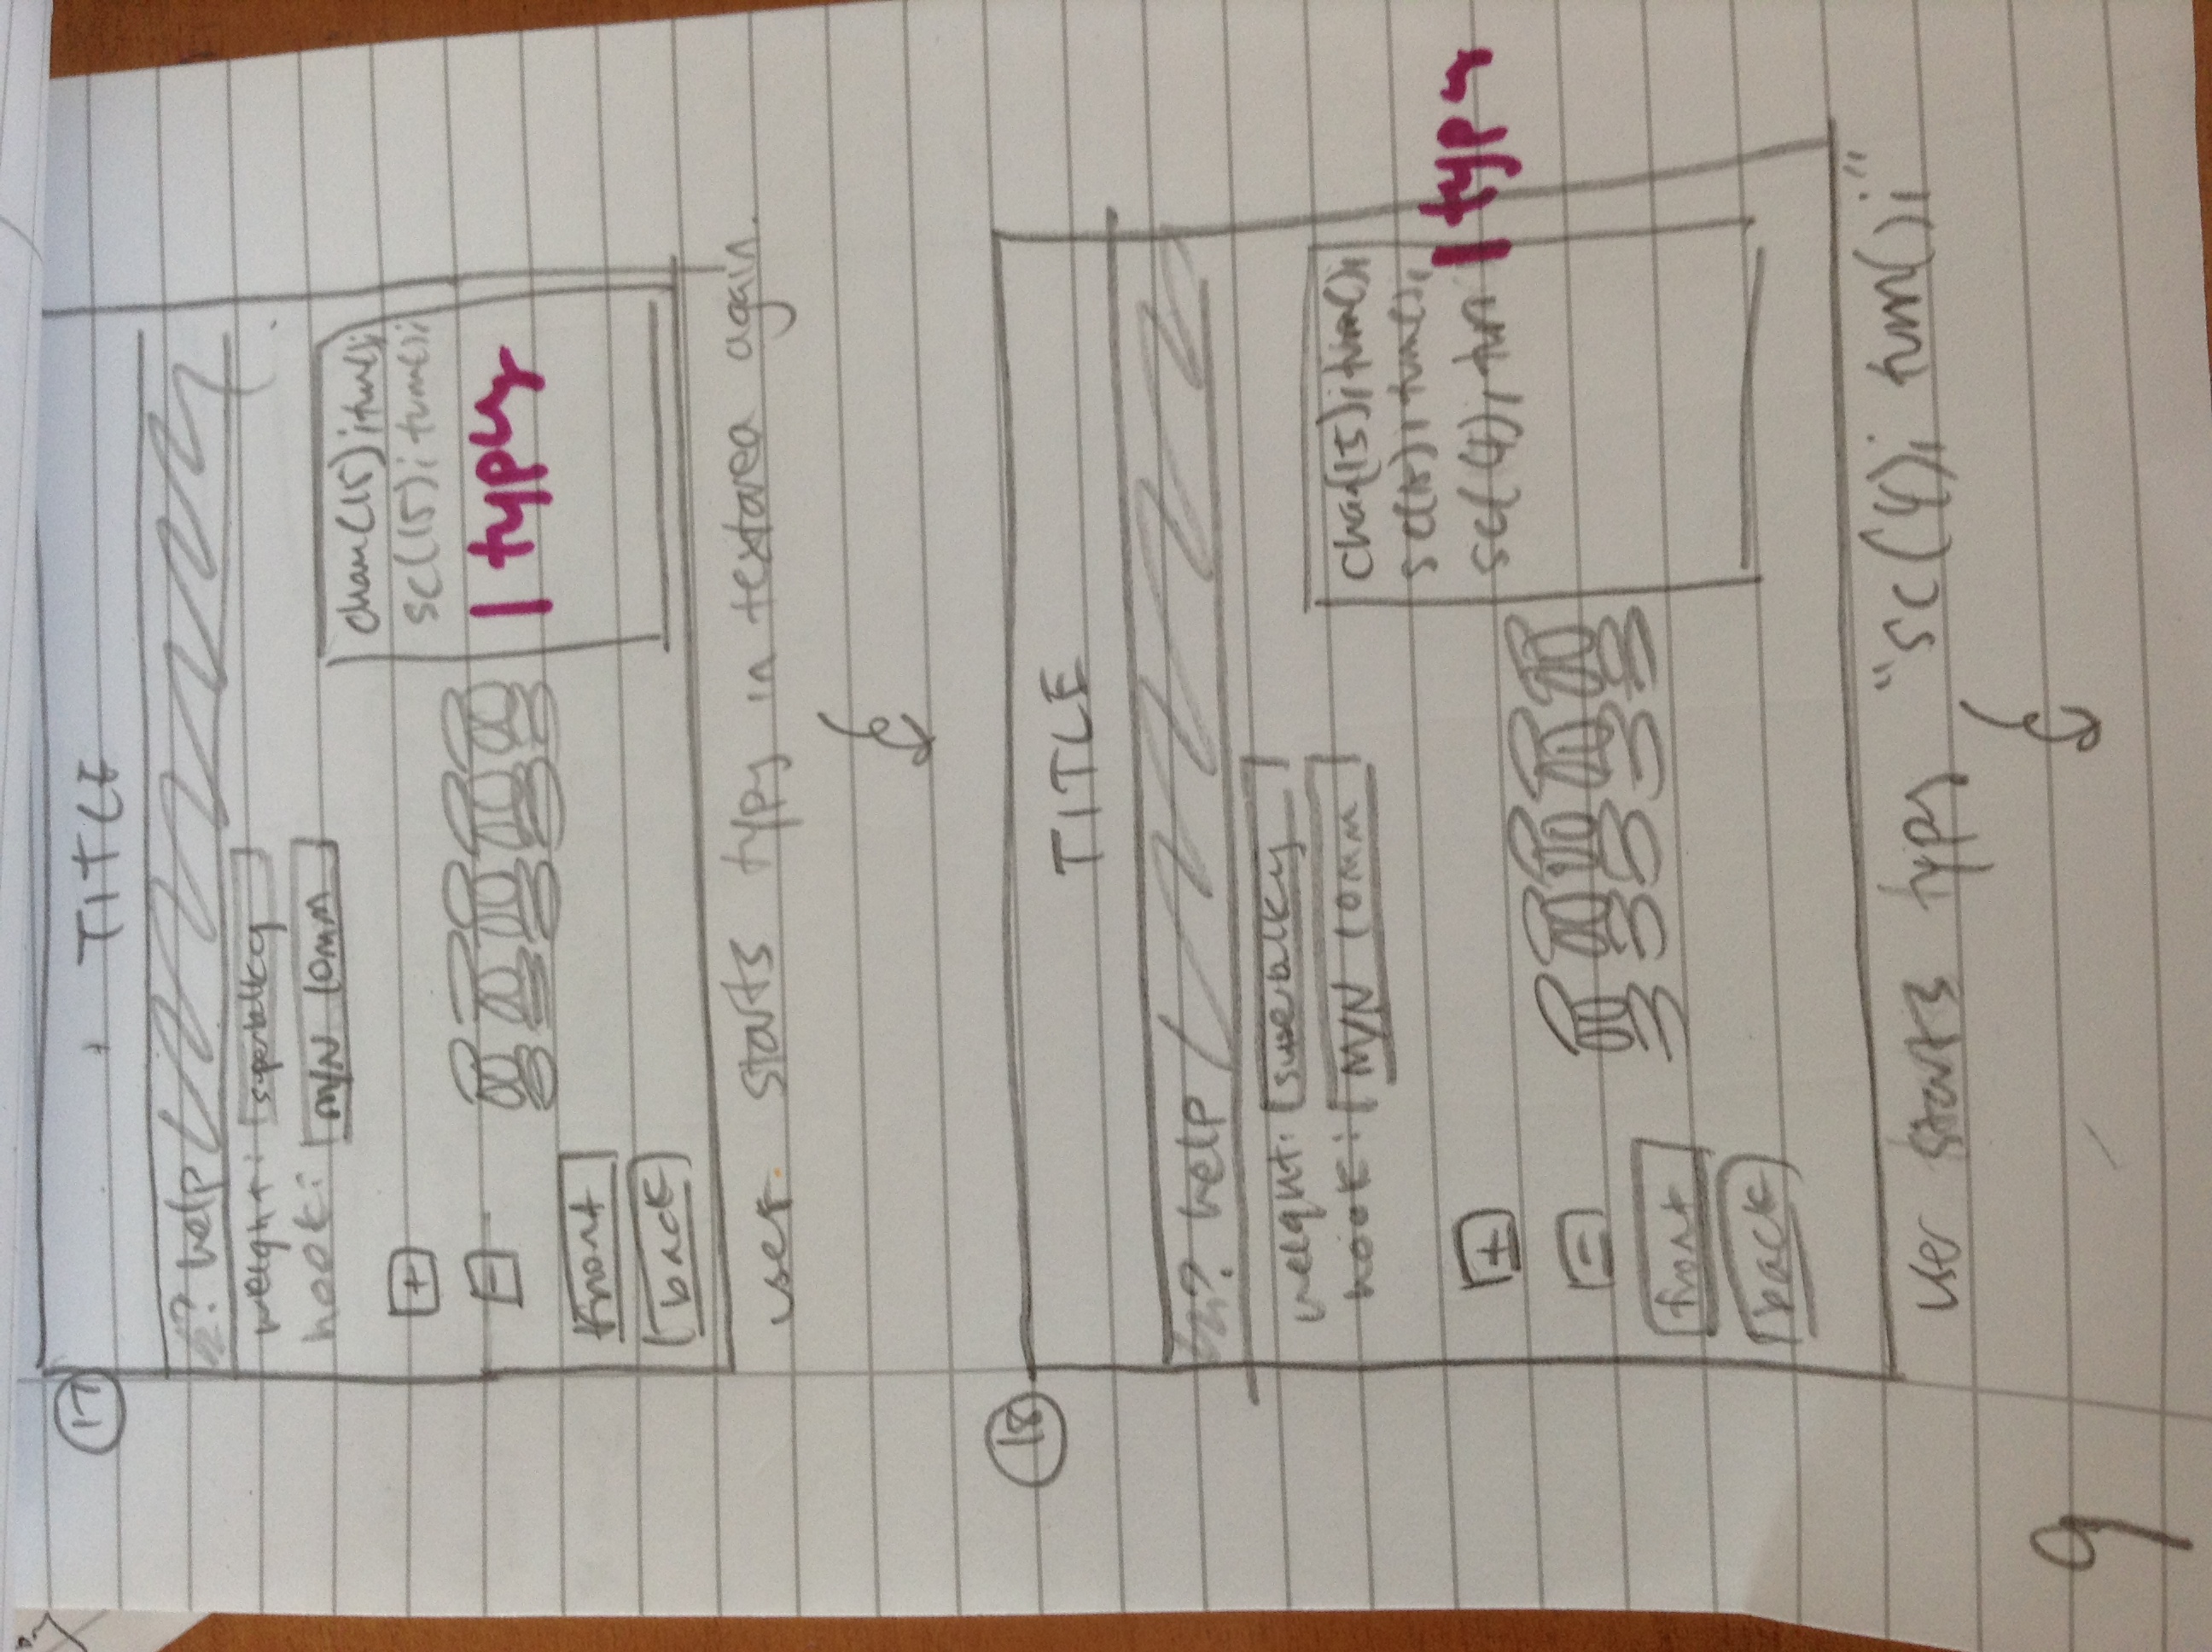 17
TITLE
? help
weight: superbulky
hook: M/N 10mm
chain(15); turn();
sc(15); turn();
+
-
| typing
front
back
user starts typing in textarea again.
18
TITLE
? help
weight: superbulky
hook: M/N 10mm
chain(15); turn();
sc(15); turn();
sc(4); turn | typing
+
-
front
back
user starts typing "sc(4); turn();"
9